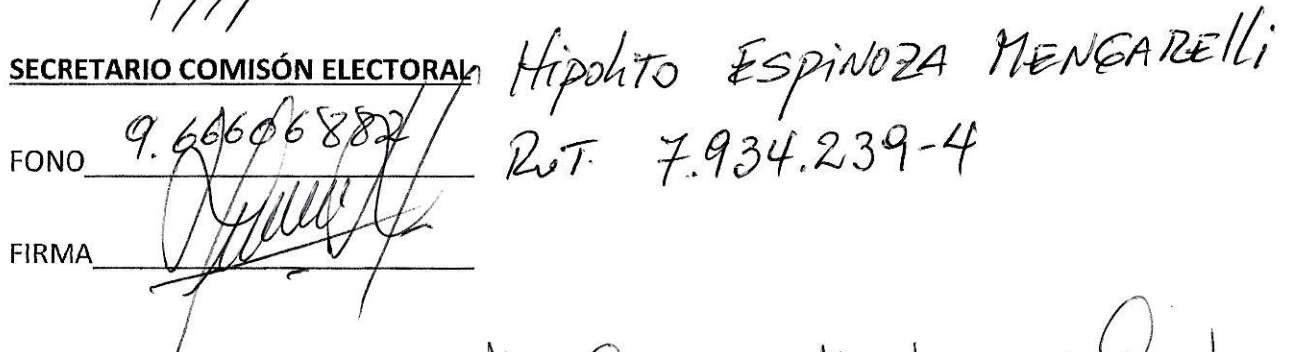 SECRETARIO COMISÓN ELECTORAL Hipolito ESPINOZA MENGARELLI
FONO 9.66606882 RUT. 7.934.239-4
FIRMA